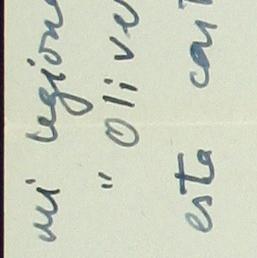 mi legion
" Olive
esta car